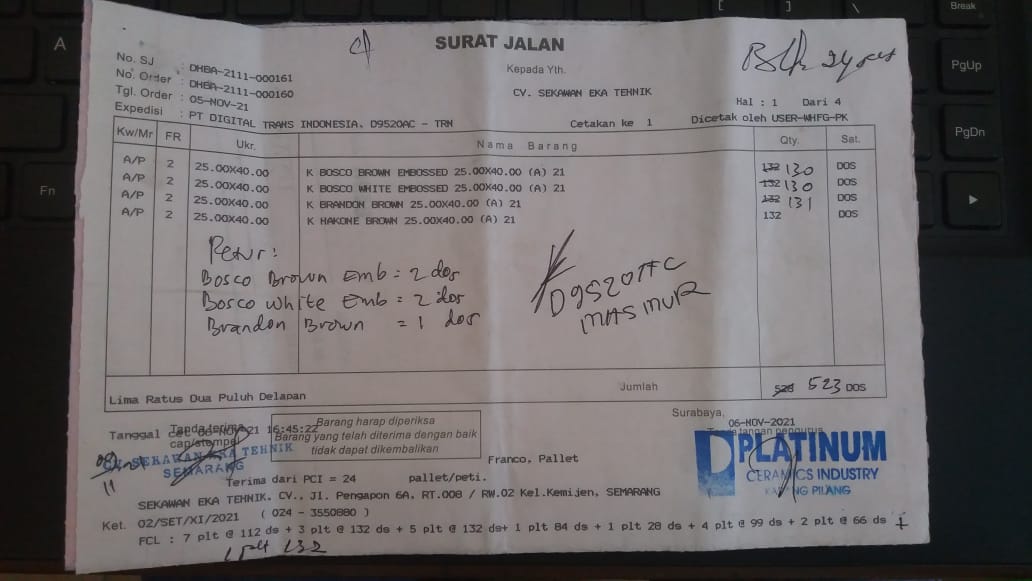 SURAT JALAN
No. SJ : DHBA-2111-000161
No. Order : DHBA-2111-000160
Tgl. Order : 05-NOV-21
Expedisi : PT DIGITAL TRANS INDONESIA, D9520AC - TRN
Kepada Yth.
CV. SEKAWAN EKA TEHNIK
Hal : 1 Dari 4
Cetakan ke 1 Dicetak oleh USER-WHFG-PK
Kw/Mr FR Ukr. Nama Barang Qty. Sat.
A/P 2 25.00X40.00 K BOSCO BROWN EMBOSSED 25.00X40.00 (A) 21 132 130 DOS
A/P 2 25.00X40.00 K BOSCO WHITE EMBOSSED 25.00X40.00 (A) 21 132 130 DOS
A/P 2 25.00X40.00 K BRANDON BROWN 25.00X40.00 (A) 21 132 131 DOS
A/P 2 25.00X40.00 K HAKONE BROWN 25.00X40.00 (A) 21 132 DOS
Retur:
Bosco Brown Emb = 2 dos
Bosco White Emb = 2 dos
Brandon Brown = 1 dos
MAS MUR
Jumlah 528 523 DOS
Lima Ratus Dua Puluh Delapan
Tanggal Cet 06-NOV-21 16:45:22
Tanda terima
cap/stempel
CV. SEKAWAN EKA TEHNIK
SEMARANG
Barang harap diperiksa
Barang yang telah diterima dengan baik
tidak dapat dikembalikan
Surabaya,
06-NOV-2021
Tanda tangan pengurus
PLATINUM
CERAMICS INDUSTRY
KARANG PILANG
Franco, Pallet
Terima dari PCI = 24 pallet/peti.
SEKAWAN EKA TEHNIK, CV., Jl. Pengapon 6A, RT.008 / RW.02 Kel.Kemijen, SEMARANG
( 024 - 3550880 )
Ket. 02/SET/XI/2021
FCL : 7 plt @ 112 ds + 3 plt @ 132 ds + 5 plt @ 132 ds+ 1 plt 84 ds + 1 plt 28 ds + 4 plt @ 99 ds + 2 plt @ 66 ds +
1 plt 132
A
Fn
Break
PgUp
PgDn